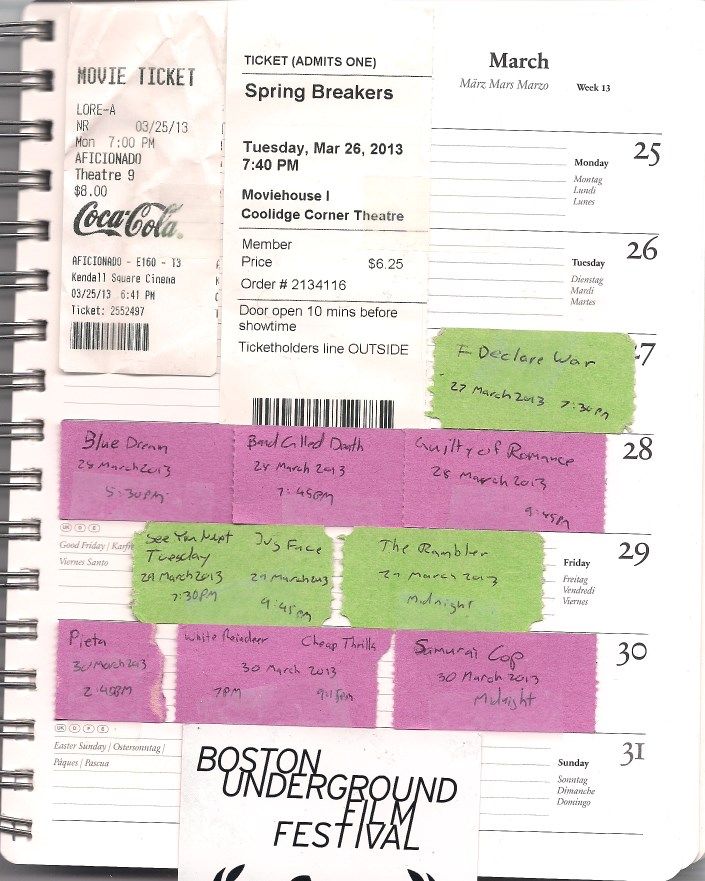 MOVIE TICKET
LORE-A
NR 03/25/13
Mon 7:00 PM
AFICIONADO
Theatre 9
$8.00
Coca-Cola
AFICIONADO - E160 - T3
Kendall Square Cinema
03/25/13 6:41 PM
Ticket: 2552497
TICKET (ADMITS ONE)
Spring Breakers
Tuesday, Mar 26, 2013
7:40 PM
Moviehouse I
Coolidge Corner Theatre
Member
Price $6.25
Order # 2134116
Door open 10 mins before
showtime
Ticketholders line OUTSIDE
March
März Mars Marzo Week 13
25
Monday
Montag
Lundi
Lunes
26
Tuesday
Dienstag
Mardi
Martes
27
I Declare War
27 March 2013 7:30PM
28
Blue Dream
28 March 2013
5:30PM
Band Called Death
28 March 2013
7:45PM
Guilty of Romance
28 March 2013
9:45PM
29
UK D E
Good Friday | Karfr
Viernes Santo
See You Next
Tuesday
29 March 2013
7:30PM
Jug Face
29 March 2013
9:45PM
The Rambler
29 March 2013
Midnight
Friday
Freitag
Vendredi
Viernes
30
Pieta
30 March 2013
2:40PM
White Reindeer Cheap Thrills
30 March 2013
7PM 9:15PM
Samurai Cop
30 March 2013
Midnight
31
UK D F E
Easter Sunday | Ostersonntag |
Pâques | Pascua
Sunday
Sonntag
Dimanche
Domingo
BOSTON
UNDERGROUND
FILM
FESTIVAL